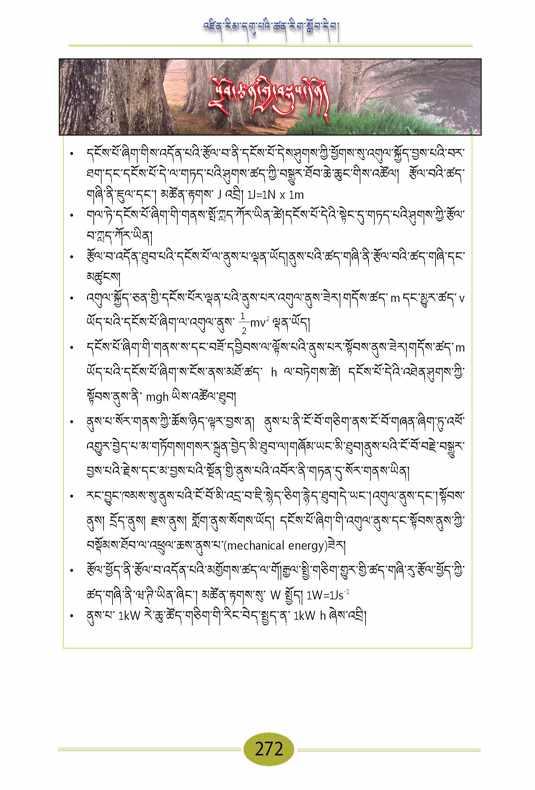 འཛིན་རིམ་དགུ་པའི་ཚན་རིག་སློབ་དེབ།
• དངོས་པོ་ཞིག་གིས་འདོན་པའི་རྩོལ་བ་ནི་དངོས་པོ་དེ་ཤུགས་ཀྱི་ཕྱོགས་སུ་འགུལ་སྐྱོད་བྱས་པའི་བར་
ཐག་དང་དངོས་པོ་དེ་ལ་གཏད་པའི་ཤུགས་ཚད་ཀྱི་བསྒྱུར་ཐོབ་ཆེ་ཆུང་གིས་འཚོལ། རྩོལ་བའི་ཚད་
གཞི་ནི་ཇུལ་དང་། མཚོན་རྟགས་ J འབྲི། 1J=1N x 1m
• གལ་ཏེ་དངོས་པོ་ཞིག་གི་གནས་སྤོ་ཀླད་ཀོར་ཡིན་ཚེ།དངོས་པོ་དེའི་སྟེང་དུ་གཏད་པའི་ཤུགས་ཀྱི་རྩོལ་
བ་ཀླད་ཀོར་ཡིན།
• རྩོལ་བ་འདོན་ཐུབ་པའི་དངོས་པོ་ལ་ནུས་པ་ལྡན་ཡོད།ནུས་པའི་ཚད་གཞི་ནི་རྩོལ་བའི་ཚད་གཞི་དང་
མཚུངས།
• འགུལ་སྐྱོད་ཅན་གྱི་དངོས་པོར་ལྡན་པའི་ནུས་པར་འགུལ་ནུས་ཟེར།གདོས་ཚད་ m དང་མྱུར་ཚད་ v
ཡོད་པའི་དངོས་པོ་ཞིག་ལ་འགུལ་ནུས་ 1/2 mv² ལྡན་ཡོད།
• དངོས་པོ་ཞིག་གི་གནས་ས་དང་བཟོ་དབྱིབས་ལ་ལྟོས་པའི་ནུས་པར་སྟོབས་ནུས་ཟེར།གདོས་ཚད་ m
ཡོད་པའི་དངོས་པོ་ཞིག་ས་ངོས་ནས་མཐོ་ཚད་ h ལ་བཏེགས་ཚེ། དངོས་པོ་དེའི་འཐེན་ཤུགས་ཀྱི་
སྟོབས་ནུས་ནི་ mgh ཡིས་འཚོལ་ཐུབ།
• ནུས་པ་སོར་གནས་ཀྱི་ཆོས་ཉིད་ལྟར་བྱས་ན། ནུས་པ་ནི་ངོ་བོ་གཅིག་ནས་ངོ་བོ་གཞན་ཞིག་ཏུ་འཕོ་
འགྱུར་བྱེད་པ་མ་གཏོགས།གསར་སྐྲུན་བྱེད་མི་ཐུབ་ལ།གཞོམ་ཡང་མི་ཐུབ།ནུས་པའི་ངོ་བོ་བརྗེ་བསྒྱུར་
བྱས་པའི་རྗེས་དང་མ་བྱས་པའི་སྔོན་གྱི་ནུས་པའི་འབོར་ནི་གཏན་དུ་སོར་གནས་ཡིན།
• རང་བྱུང་ཁམས་སུ་ནུས་པའི་ངོ་བོ་མི་འདྲ་བ་ཇི་སྙེད་ཅིག་རྙེད་ཐུབ།དེ་ཡང་།འགུལ་ནུས་དང་།སྟོབས་
ནུས། དྲོད་ནུས། རྫས་ནུས། གློག་ནུས་སོགས་ཡོད། དངོས་པོ་ཞིག་གི་འགུལ་ནུས་དང་སྟོབས་ནུས་ཀྱི་
བསྡོམས་ཐོབ་ལ་འཕྲུལ་ཆས་ནུས་པ་(mechanical energy)ཟེར།
• རྩོལ་ཕྱོད་ནི་རྩོལ་བ་འདོན་པའི་མགྱོགས་ཚད་ལ་གོ།རྒྱལ་སྤྱི་གཅིག་གྱུར་གྱི་ཚད་གཞི་རུ་རྩོལ་ཕྱོད་ཀྱི་
ཚད་གཞི་ནི་ཝ་ཊི་ཡིན་ཞིང་། མཚོན་རྟགས་སུ་ W སྤྱོད། 1W=1Js⁻¹
• ནུས་པ་ 1kW རེ་ཆུ་ཚོད་གཅིག་གི་རིང་བེད་སྤྱད་ན་ 1kW h ཞེས་འབྲི།
272